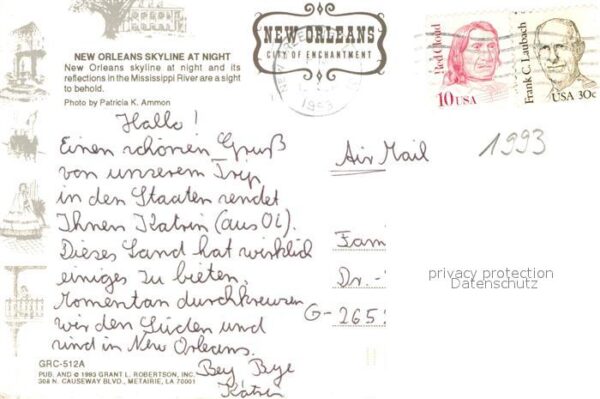 NEW ORLEANS
CITY OF ENCHANTMENT
NEW ORLEANS SKYLINE AT NIGHT
New Orleans skyline at night and its
reflections in the Mississippi River are a sight
to behold.
Photo by Patricia K. Ammon
1993
Red Cloud
10 USA
Frank C. Laubach
USA 30c
Hallo!
Einen schönen Gruß
von unserem Trip
in den Staaten sendet
Ihnen Katrin (aus Ol).
Dieses Land hat wirklich
einiges zu bieten.
Momentan durchkreuzen
wir den Süden und
sind in New Orleans.
Bey Bye
Katrin
Air Mail
1993
Fam
Dr.-
G-265
privacy protection
Datenschutz
GRC-512A
PUB. AND © 1993 GRANT L. ROBERTSON, INC.
308 N. CAUSEWAY BLVD., METAIRIE, LA 70001